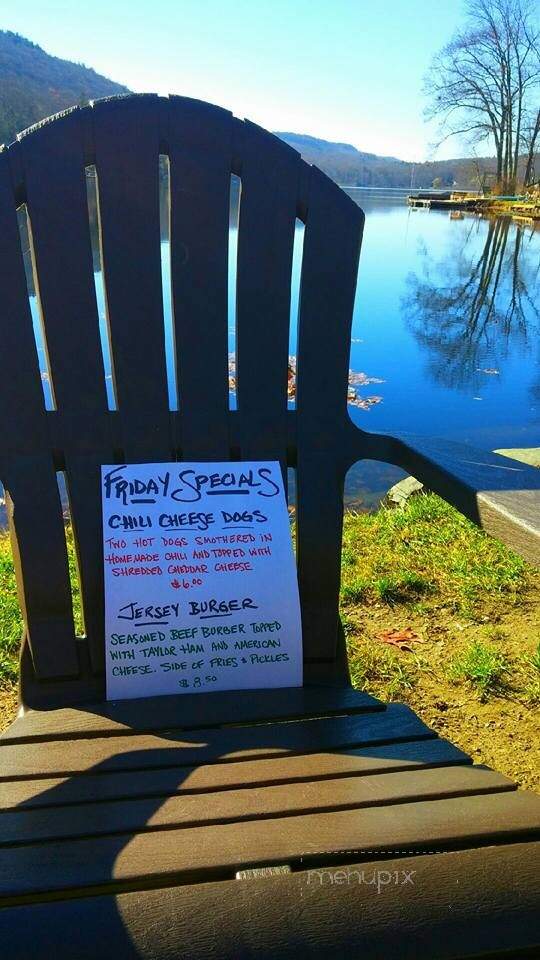 FRIDAY SPECIALS
CHILI CHEESE DOGS
TWO HOT DOGS SMOTHERED IN
HOMEMADE CHILI AND TOPPED WITH
SHREDDED CHEDDAR CHEESE
$6.00
JERSEY BURGER
SEASONED BEEF BURGER TOPPED
WITH TAYLOR HAM AND AMERICAN
CHEESE. SIDE OF FRIES & PICKLES
$8.50
menupix